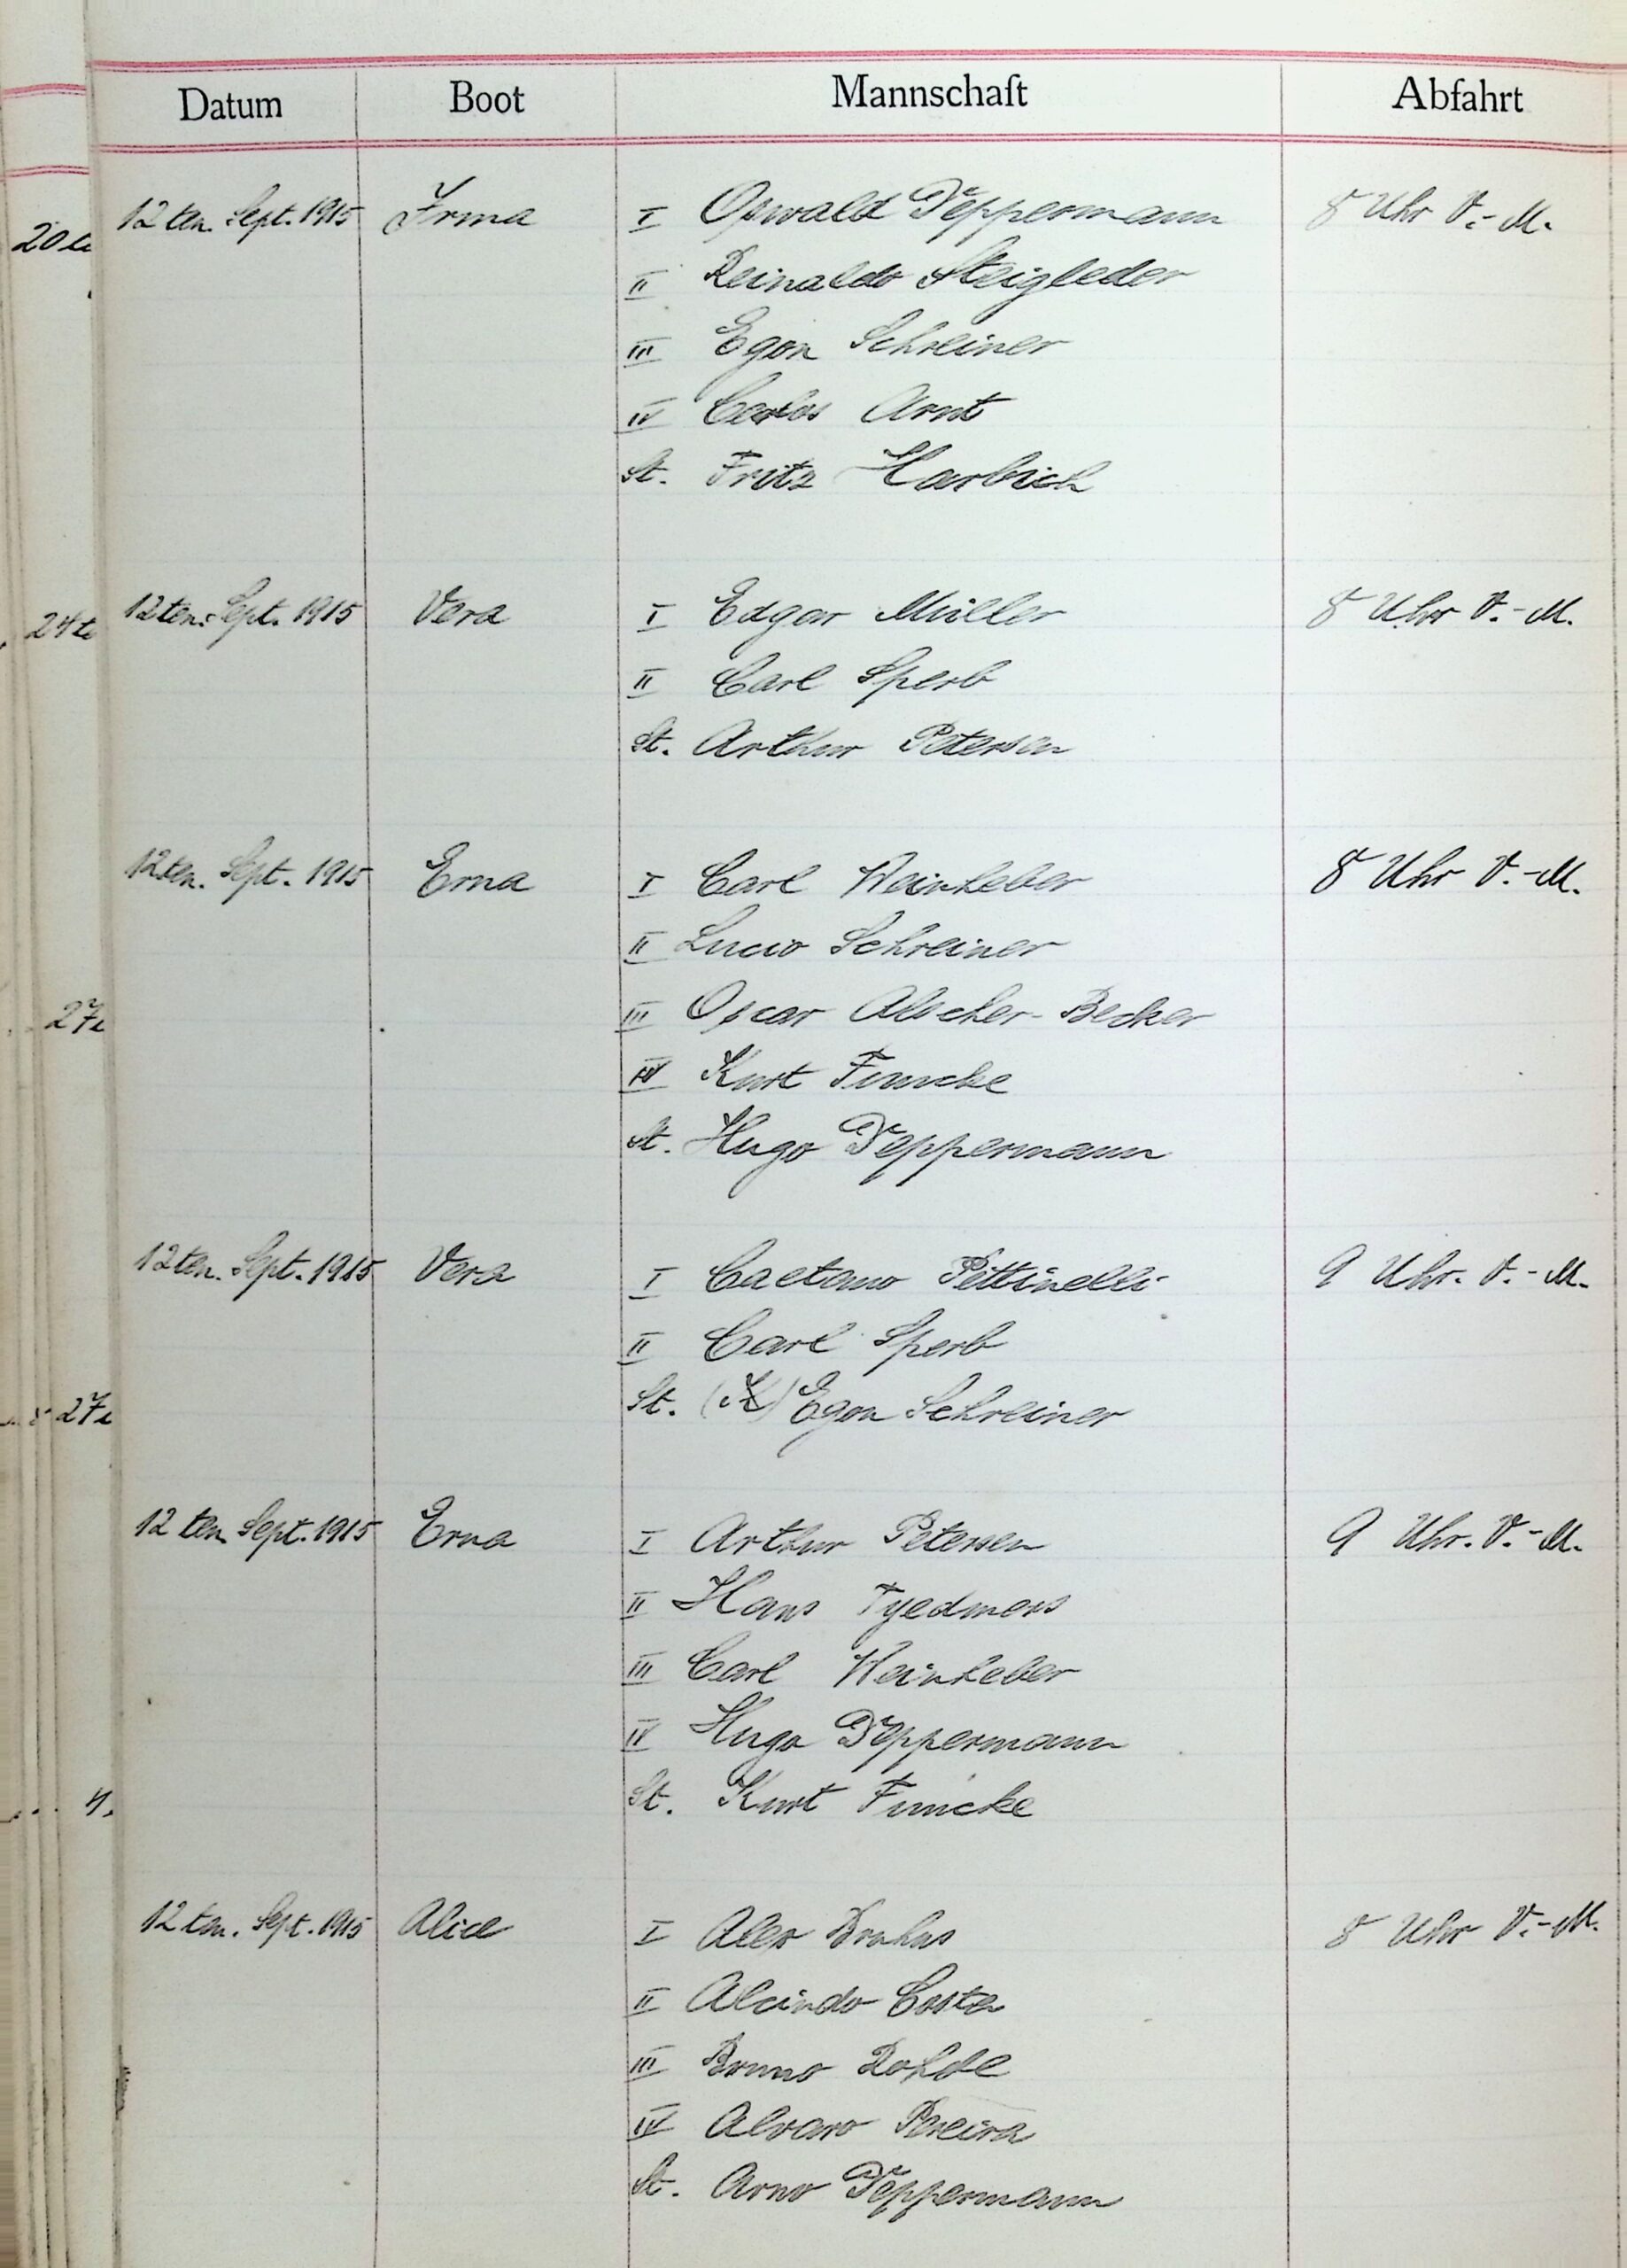 Datum Boot Mannschaft Abfahrt
20
12 ten. Sept. 1915 Irma I Oswald Teppermann 8 Uhr V.-M.
II Reinaldo Steigleder
III Egon Schreiner
IV Carlos Arnt
St. Fritz Harbich
24te
12ten. Sept. 1915 Vera I Edgar Müller 8 Uhr V.-M.
II Carl Sperb
St. Arthur Petersen
12ten. Sept. 1915 Erna I Carl Weinheber 8 Uhr V.-M.
II Lucio Schreiner
III Oscar Alscher-Becker
27
IV Kurt Funcke
St. Hugo Teppermann
12ten. Sept. 1915 Vera I Caetano Pettinelli 9 Uhr. V.-M.
II Carl Sperb
St. (X) Egon Schreiner
27
12 ten Sept. 1915 Erna I Arthur Petersen 9 Uhr. V.-M.
II Hans Tyedmers
III Carl Weinheber
IV Hugo Teppermann
St. Kurt Funcke
12 ten. Sept. 1915 Alice I Alex Bruhns 8 Uhr V.-M.
II Alcindo Costa
III Bruno Rohde
IV Alvaro Pereira
St. Arno Teppermann